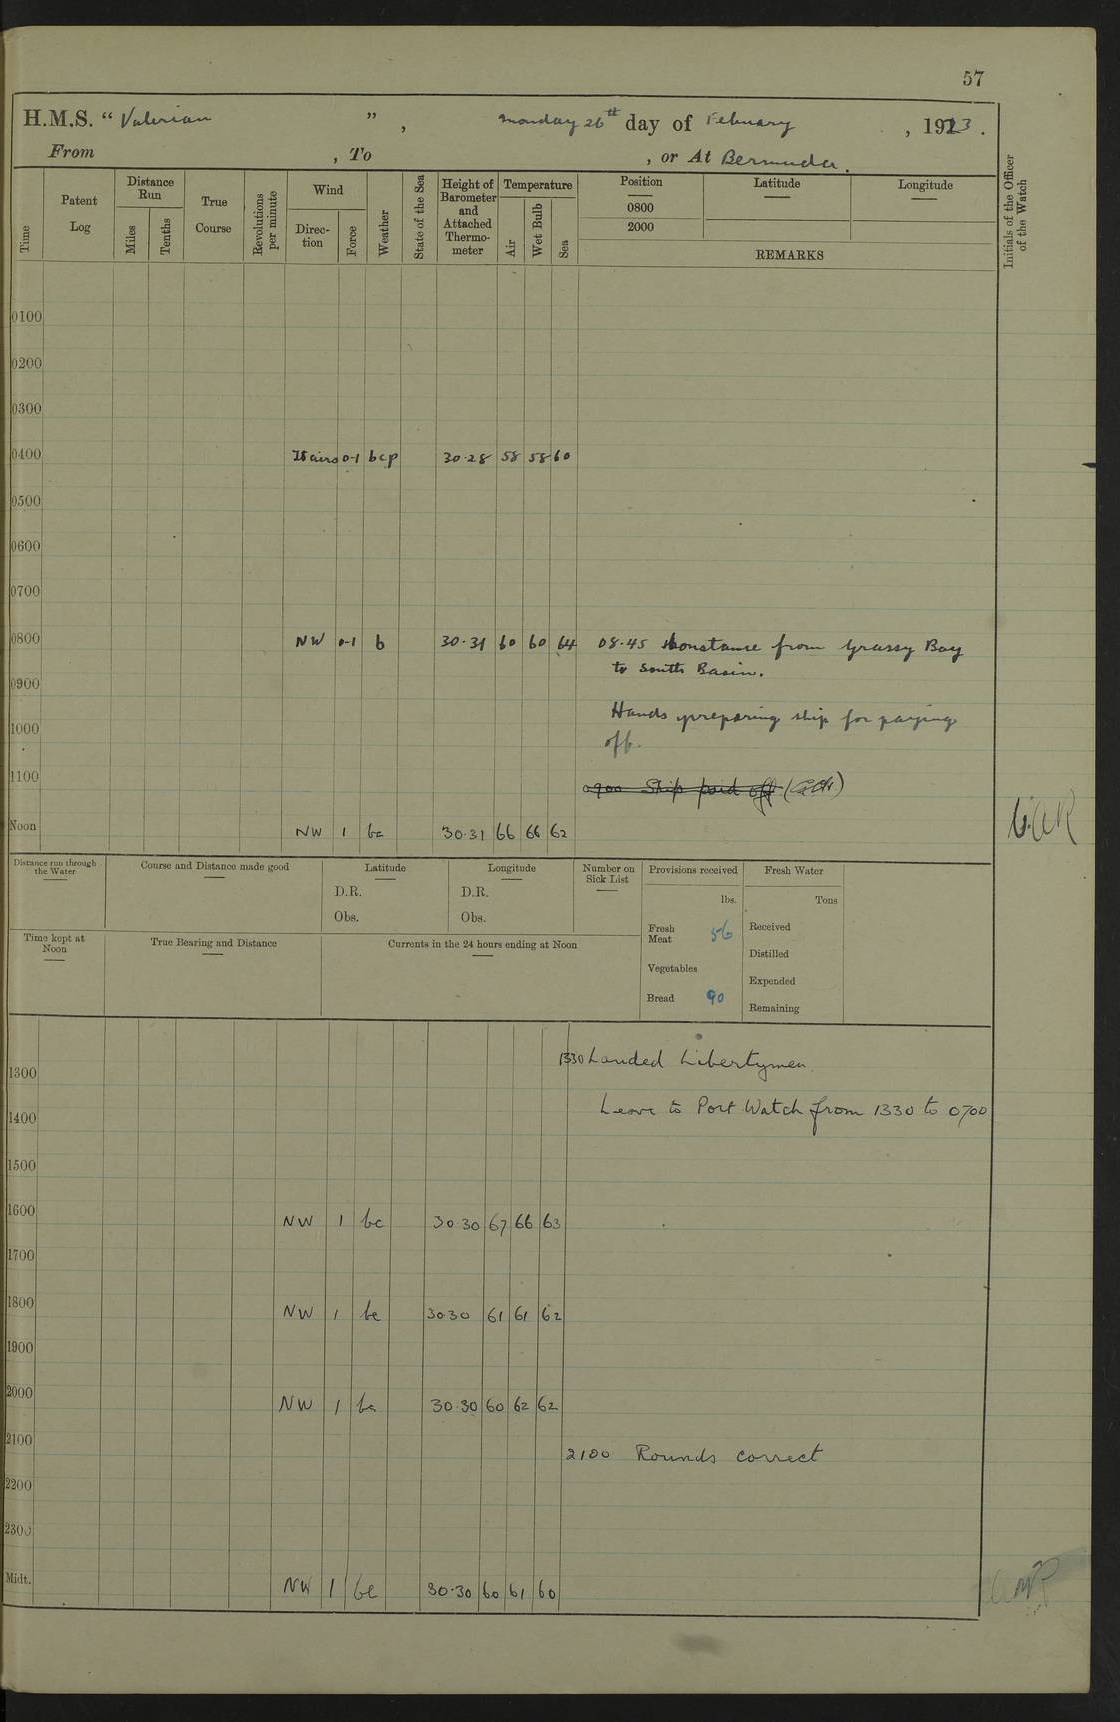 57
H.M.S. “ Valerian ” , Monday 26th day of February , 1923 .
From , To , or At Bermuda.
Time
Patent Log
Distance Run
Miles
Tenths
True Course
Revolutions per minute
Wind
Direc-tion
Force
Weather
State of the Sea
Height of Barometer and Attached Thermo-meter
Temperature
Air
Wet Bulb
Sea
Position
0800
2000
Latitude
Longitude
REMARKS
Initials of the Officer of the Watch
0100
0200
0300
0400 lt airs 0-1 bcp 30·28 58 58 60
0500
0600
0700
0800 NW 0-1 b 30·31 60 60 64 08·45 Constance from Grassy Bay
to South Basin.
0900
Hands preparing ship for paying
1000
off.
1100 0900 Ship paid off
Noon NW 1 bc 30·31 66 66 62
Distance run through the Water
Course and Distance made good
Latitude
D.R.
Obs.
Longitude
D.R.
Obs.
Number on Sick List
Provisions received
lbs.
Fresh Meat 56
Vegetables
Bread 90
Fresh Water
Tons
Received
Distilled
Expended
Remaining
Time kept at Noon
True Bearing and Distance
Currents in the 24 hours ending at Noon
1330 Landed Libertymen
1300
Leave to Port Watch from 1330 to 0700
1400
1500
1600 NW 1 bc 30·30 67 66 63
1700
1800 NW 1 bc 30·30 61 61 62
1900
2000 NW 1 bc 30·30 60 62 62
2100 2100 Rounds correct
2200
2300
Midt. NW 1 bc 30·30 60 61 60